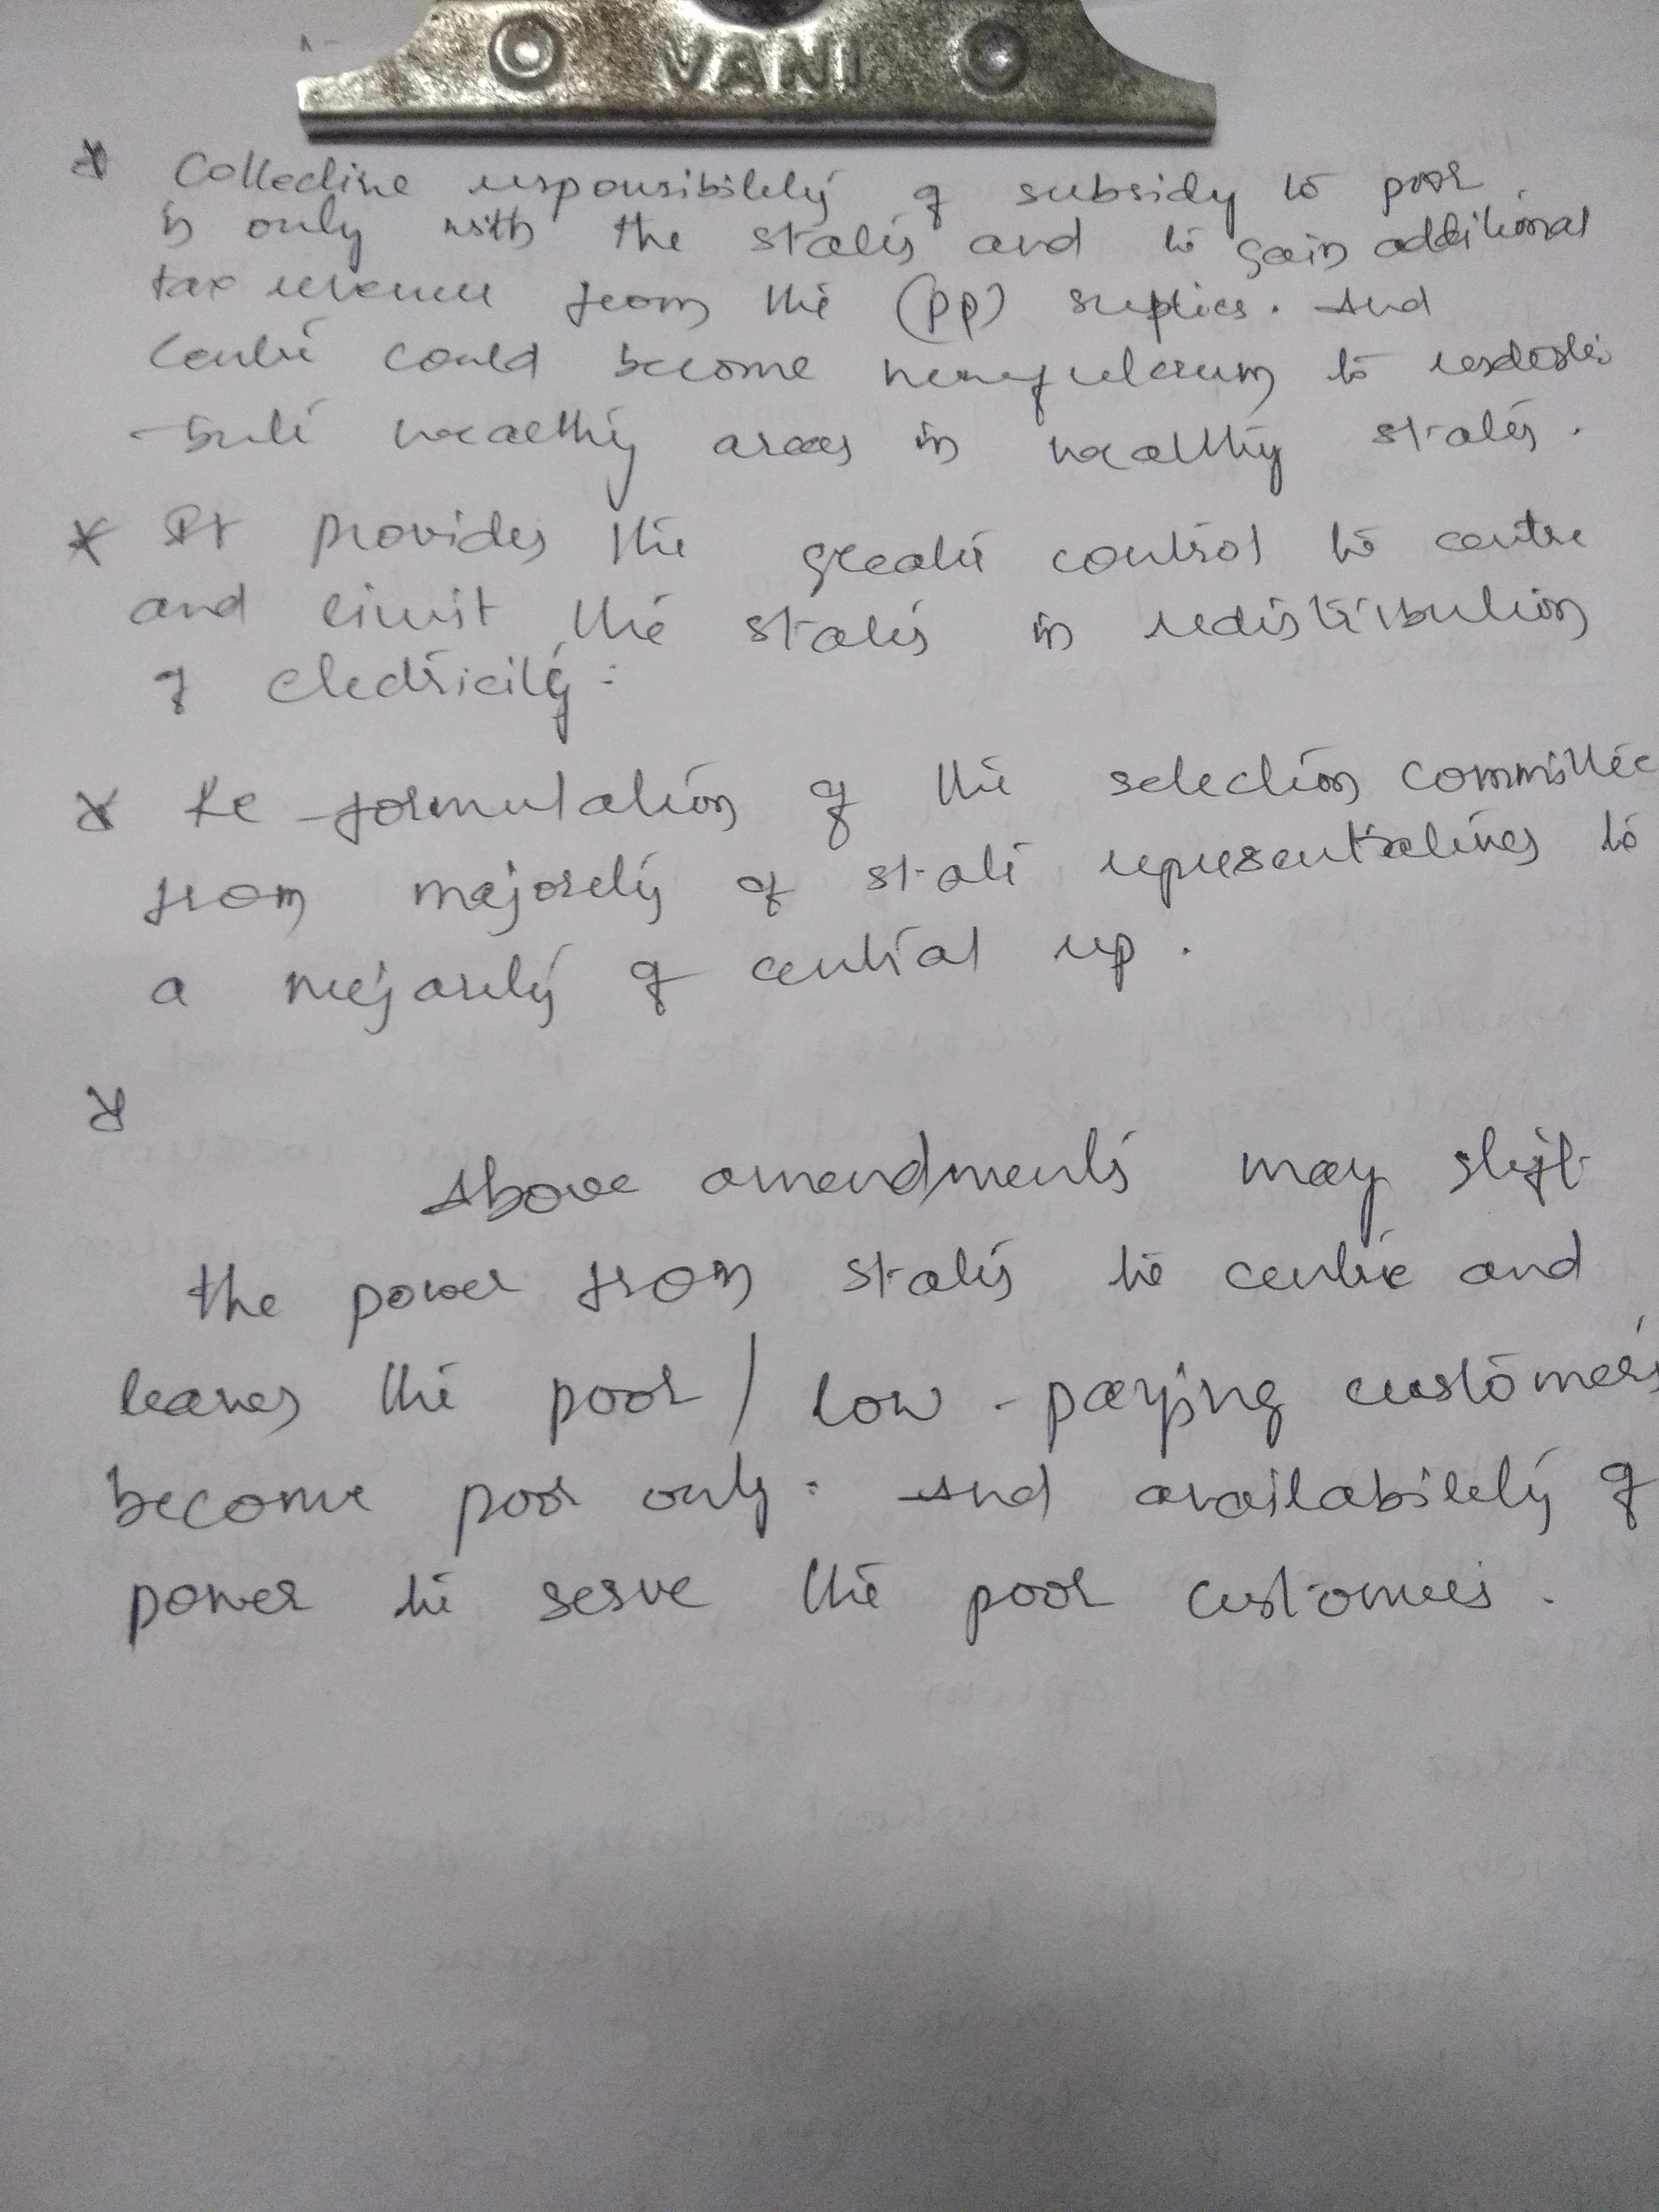 VANI
* Collective responsibility of subsidy to poor
is only with the states and to gain additional
tax revenue from the (PP) suplies. And
Centre could become to redistri
-bute wealthy areas in wealthy states.
* It provides the greater control to centre
and limit the states in redistribution
of electricity.
* Re-formulation of the selection committee
from majority of state representatives to
a majority of central rep.
*
Above amendments may shift
the power from states to centre and
leaves the poor / low-paying customers
become poor only. And availability of
power to serve the poor customers.